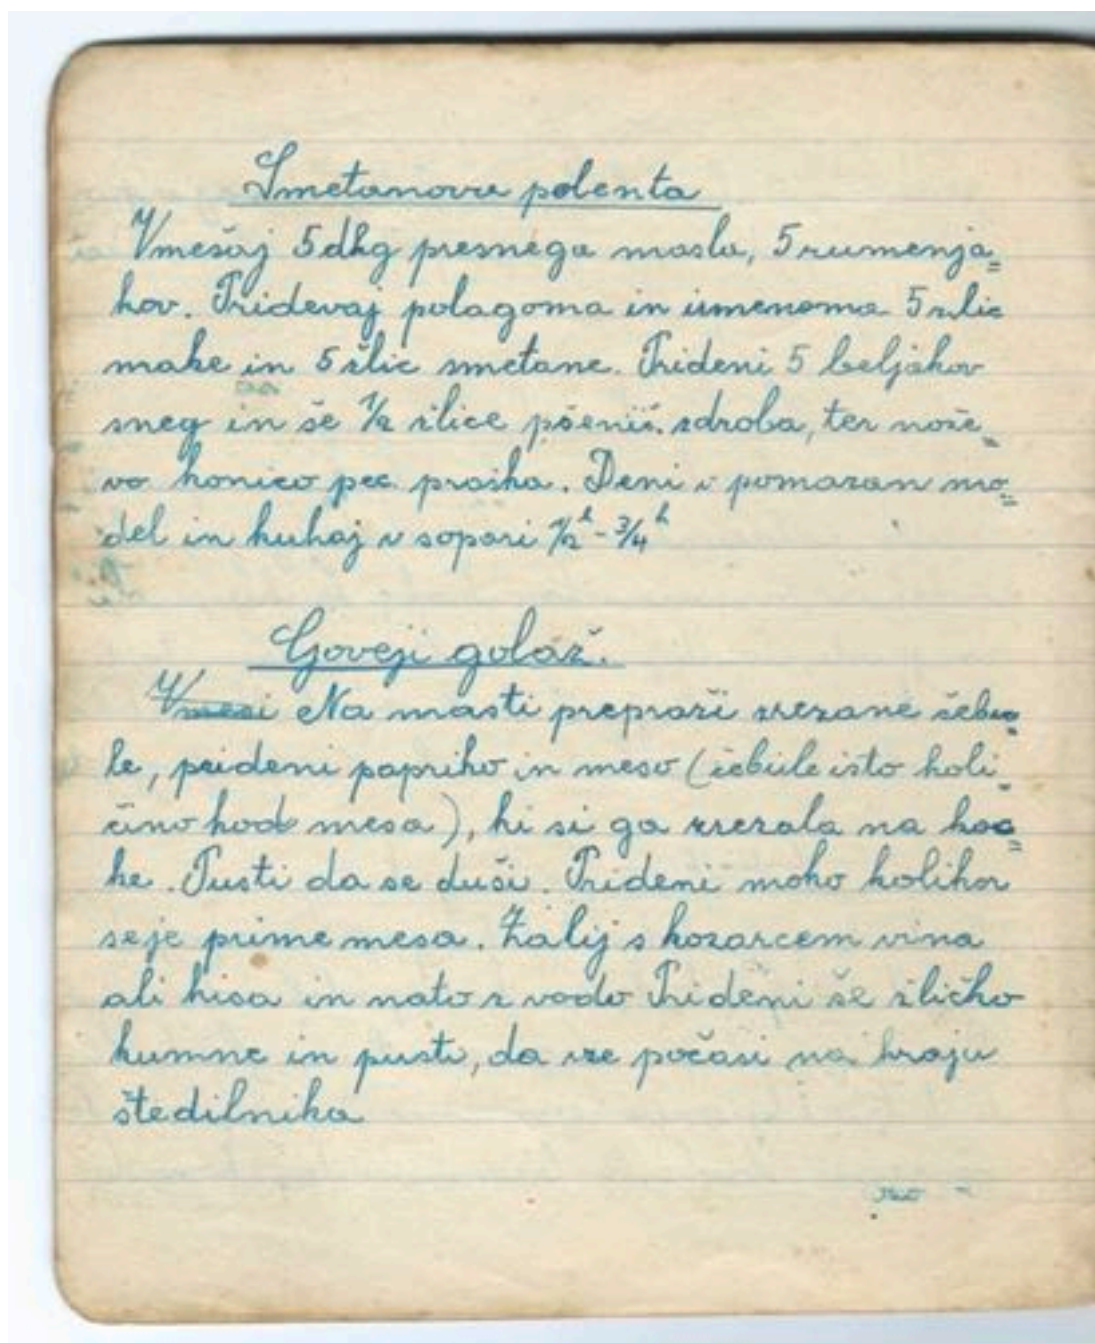 Smetanova polenta
Vmešaj 5 dkg presnega masla, 5 rumenja=
kov. Pridevaj polagoma in izmenoma 5 žlic
moke in 5 žlic smetane. Prideni 5 beljakov
sneg in še 1/2 žlice pšenič. zdroba, ter nože=
vo konico pec. praška. Deni v pomazan mo=
del in kuhaj v sopari 1/2 h - 3/4 h
Goveji golaž.
Vmesi Na masti prepraži zrezane čebu=
le, prideni papriko in meso (čebule isto koli=
čino kod mesa), ki si ga zrezala na koc=
ke. Pusti da se duši. Prideni moko kolikor
se je prime mesa. Zalij s kozarcem vina
ali kisa in nato z vodo Prideni še žličko
kumne in pusti, da vre počasi na kraju
štedilnika